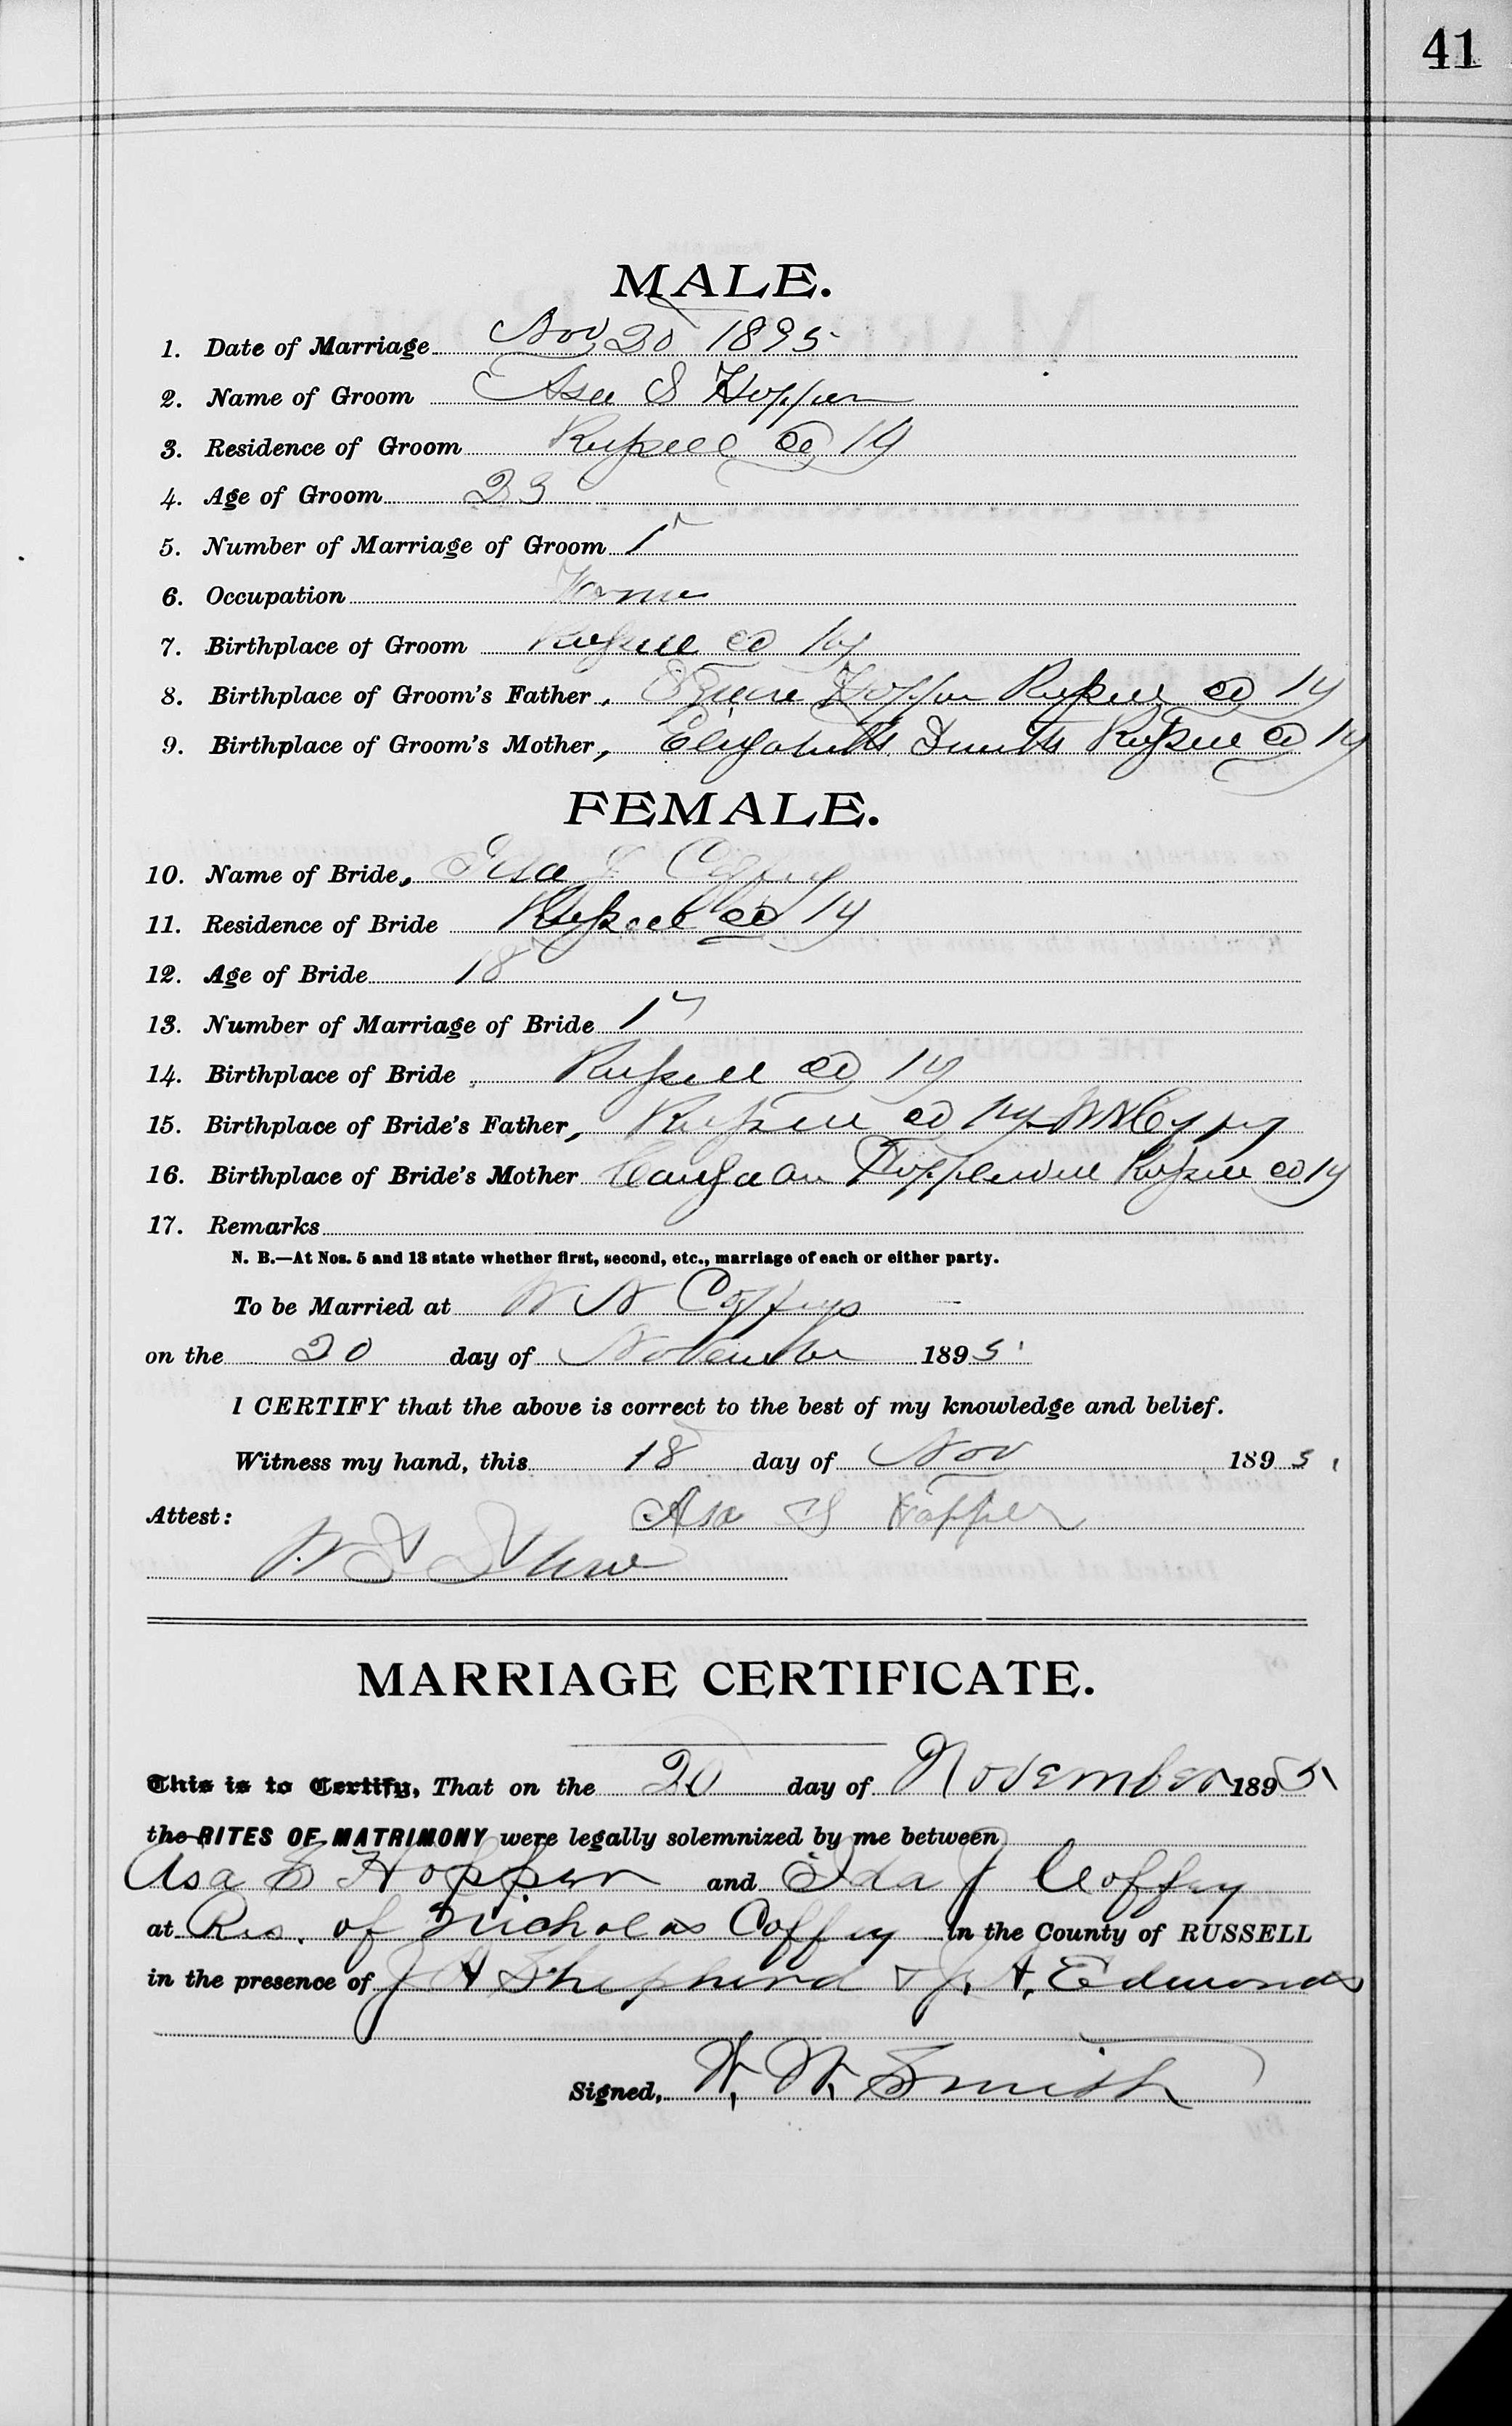 41
MALE.
1. Date of Marriage Nov 20 1895
2. Name of Groom Asa S Hopper
3. Residence of Groom Russell Co Ky
4. Age of Groom 23
5. Number of Marriage of Groom 1st
6. Occupation Farmer
7. Birthplace of Groom Russell Co Ky
8. Birthplace of Groom's Father, Squire Hopper Russell Co Ky
9. Birthplace of Groom's Mother, Elizabeth Russell Co Ky
FEMALE.
10. Name of Bride, Ida J Coffey
11. Residence of Bride Russell Co Ky
12. Age of Bride 18
13. Number of Marriage of Bride 1st
14. Birthplace of Bride Russell Co Ky
15. Birthplace of Bride's Father, Russell Co Ky W N Coffey
16. Birthplace of Bride's Mother Popplewell Russell Co Ky
17. Remarks
N. B.—At Nos. 5 and 13 state whether first, second, etc., marriage of each or either party.
To be Married at W N Coffeys
on the 20 day of November 1895
I CERTIFY that the above is correct to the best of my knowledge and belief.
Witness my hand, this 18 day of Nov 1895
Attest: Asa S Hopper
MARRIAGE CERTIFICATE.
This is to Certify, That on the 20 day of November 1895
the RITES OF MATRIMONY were legally solemnized by me between
Asa S Hopper and Ida J Coffey
at Res. of Nicholas Coffey in the County of RUSSELL
in the presence of J A Shepherd & J. A. Edmonds
Signed, W. W. Smith